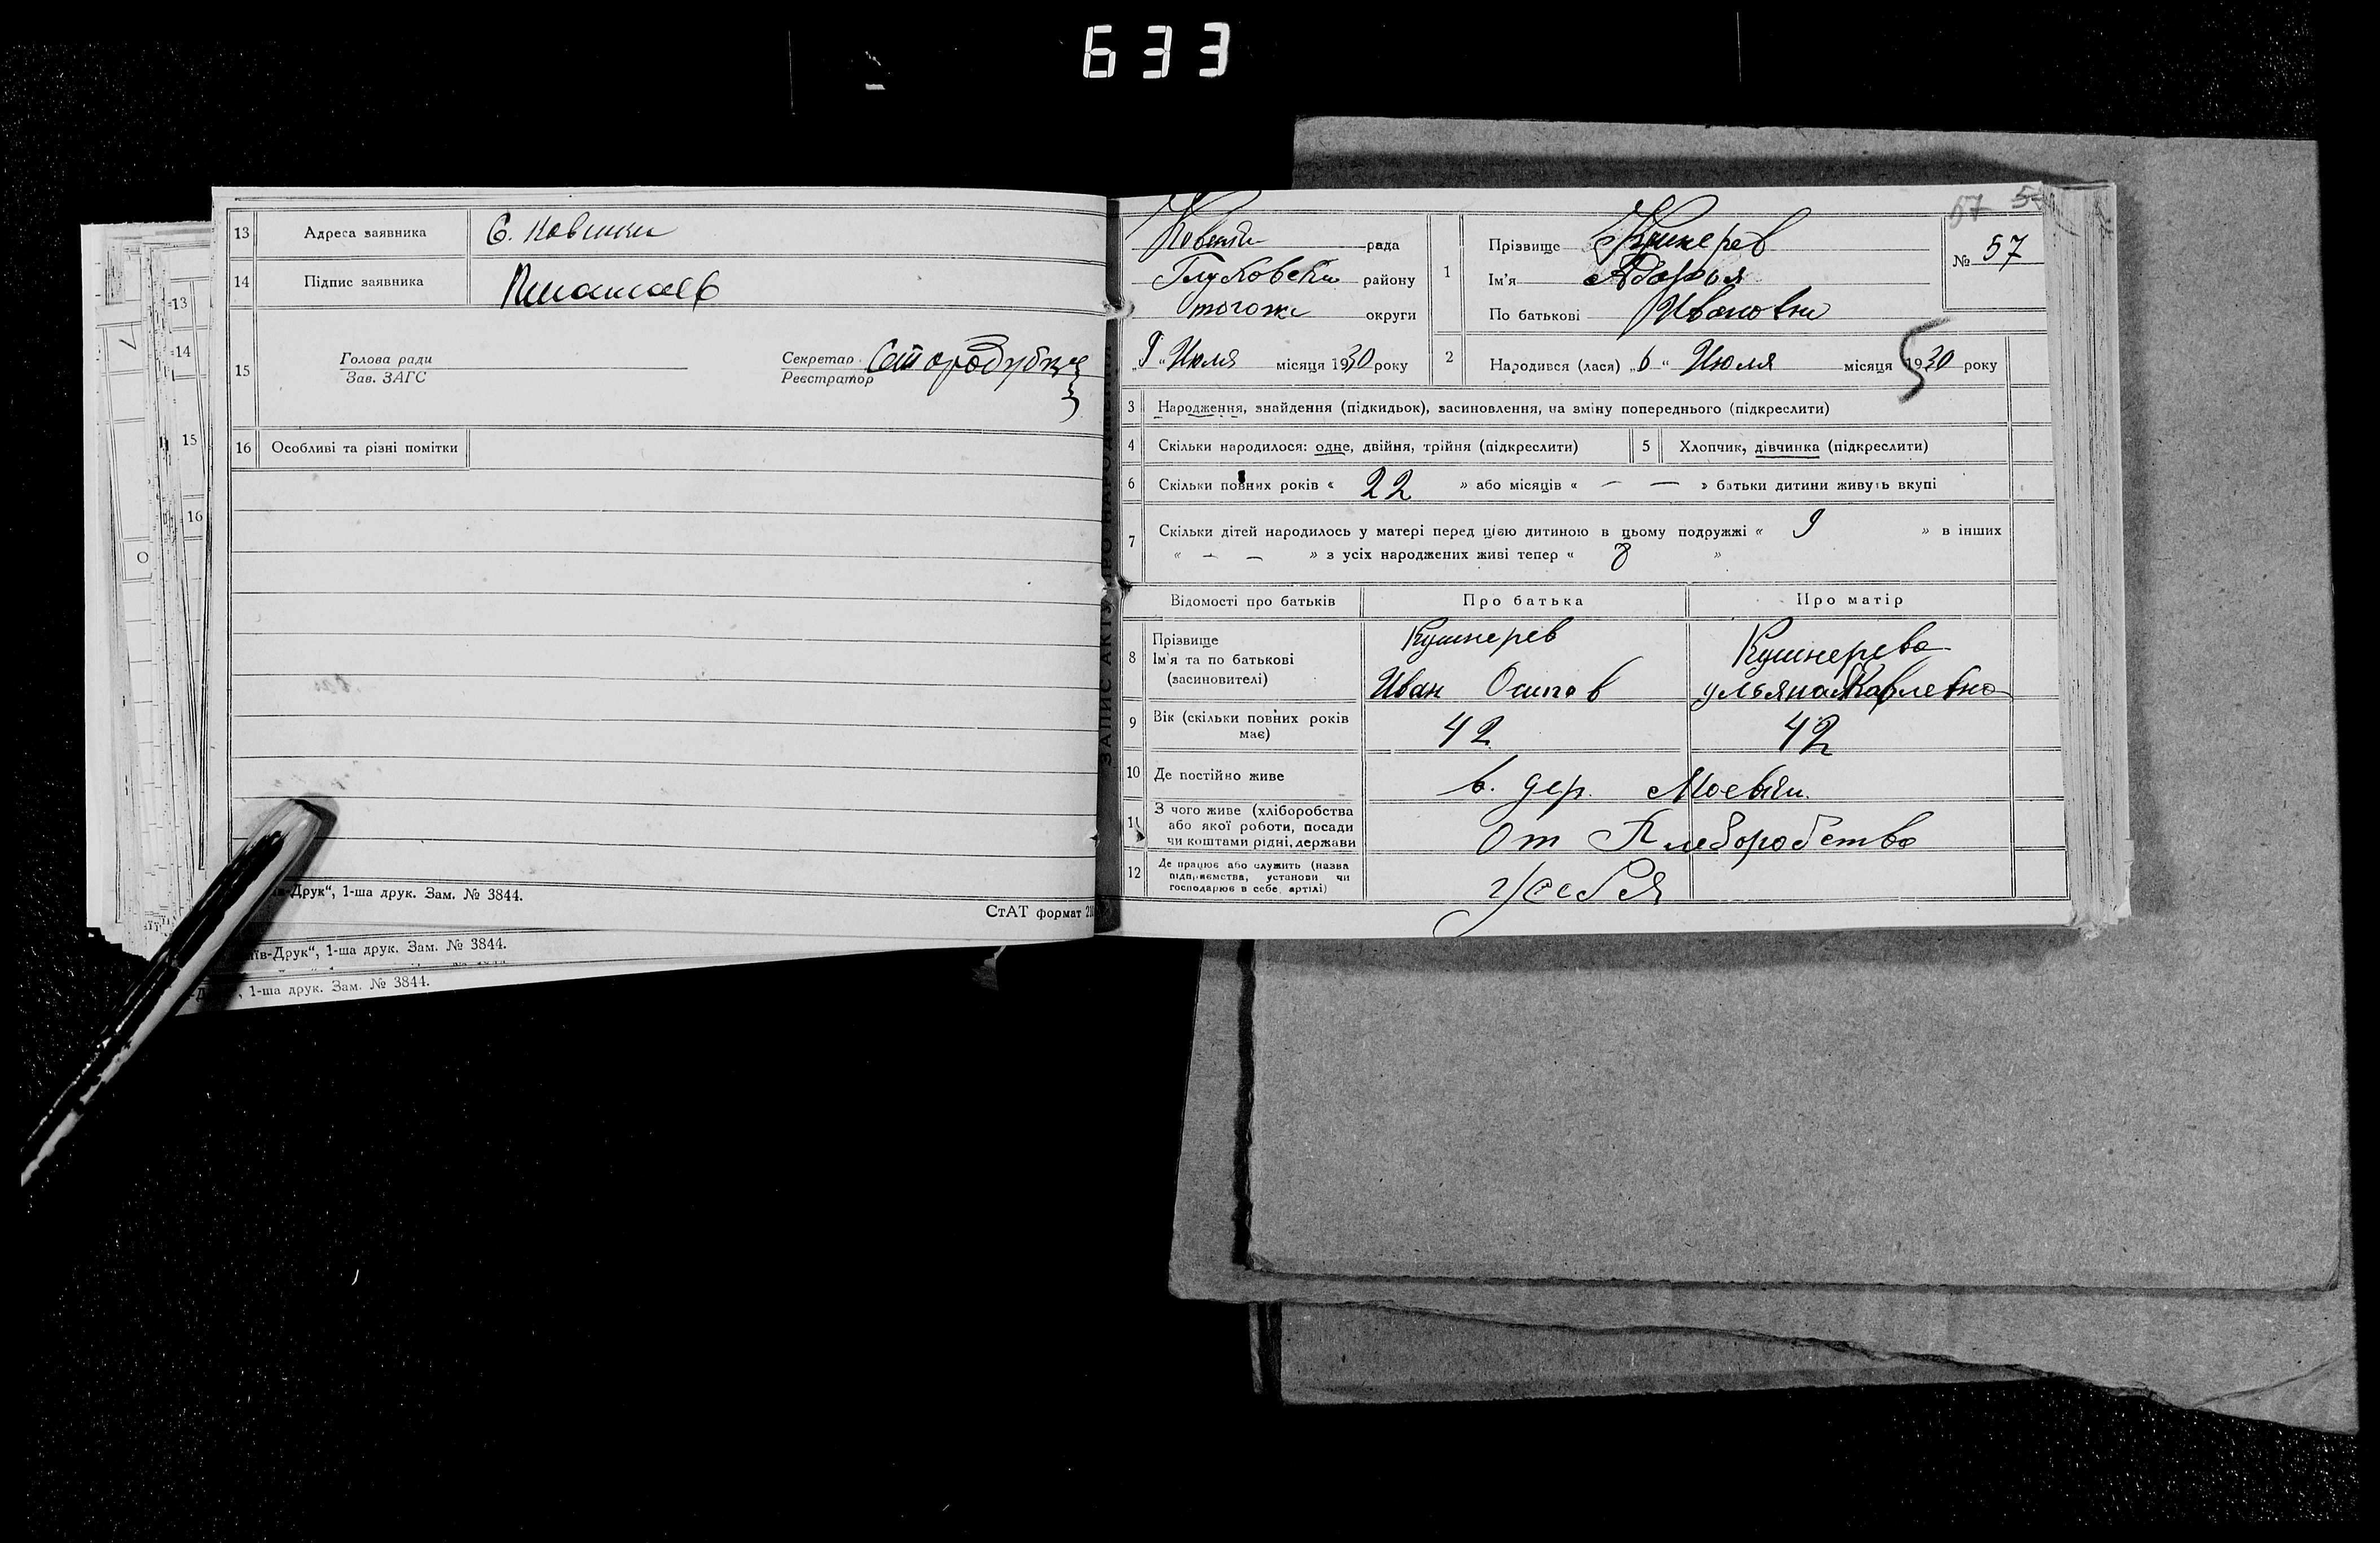 633
13 Адреса заявника С. Ковинки
14 Підпис заявника
15 Голова ради
Зав. ЗАГС
Секретар
Реєстратор
16 Особливі та різні помітки
-Друк“, 1-ша друк. Зам. № 3844.
СтАТ формат
їв-Друк“, 1-ша друк. Зам. № 3844.
, 1-ша друк. Зам. № 3844.
13
14
15
16
57
рада
району
округи
„9“ Июля місяця 1930 року
1 Прізвище Кушнерев
Ім'я
По батькові Ивановна
№ 57
2 Народився (лася) „6“ Июля місяця 1930 року
3 Народження, знайдення (підкидьок), засиновлення, на зміну попереднього (підкреслити)
4 Скільки народилося: одне, двійня, трійня (підкреслити) 5 Хлопчик, дівчинка (підкреслити)
6 Скільки повних років « 22 » або місяців « — — » батьки дитини живуть вкупі
7 Скільки дітей народилось у матері перед цією дитиною в цьому подружжі « 9 » в інших
« – – » з усіх народжених живі тепер « 8 »
Відомості про батьків Про батька Про матір
8 Прізвище
Ім'я та по батькові
(засиновителі)
Кушнерев
Иван Осипов
Кушнерева
Ульяна Павлевна
9 Вік (скільки повних років
має)
42 42
10 Де постійно живе в. дер.
11 З чого живе (хліборобства
або якої роботи, посади
чи коштами рідні, держави
От Хлеборобство
12 Де працює або служить (назва
підприємства, установи чи
господарює в себе, артілі)
у себя